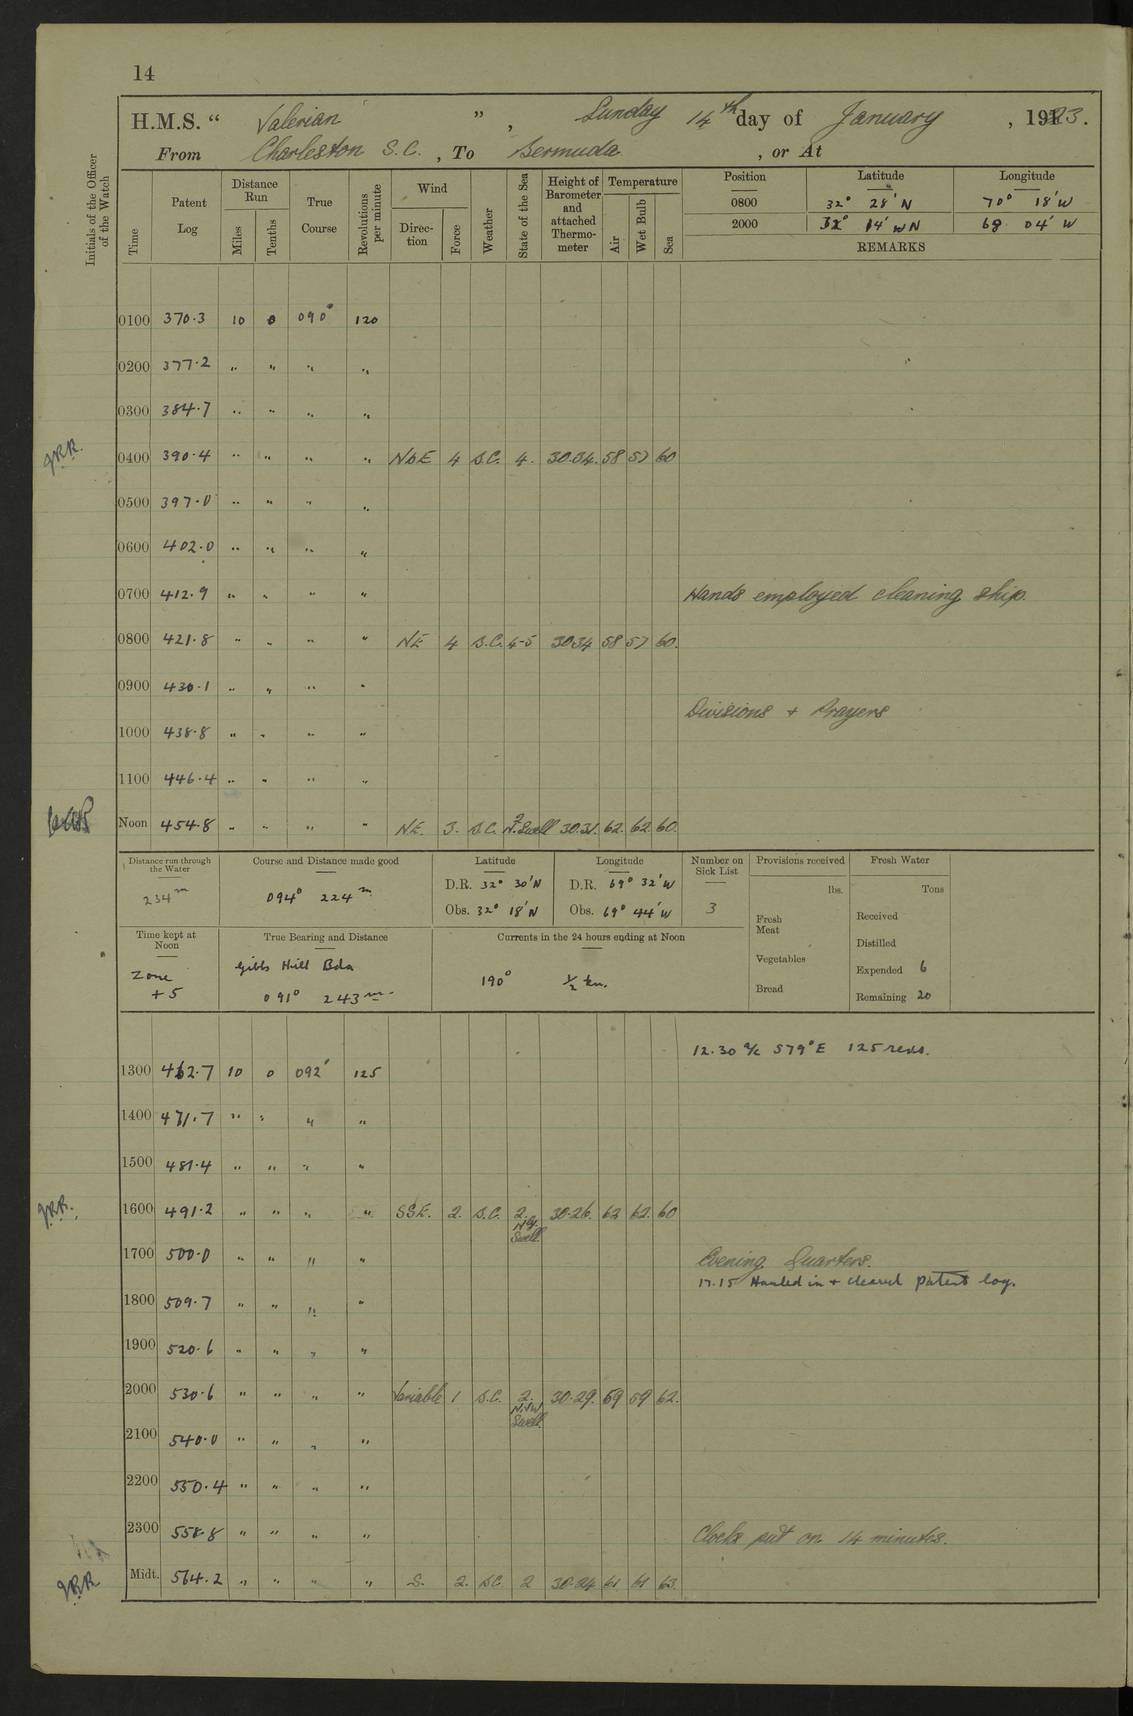 14
H.M.S. “ Valerian ” , Sunday 14th day of January , 1923.
From Charleston S.C. , To Bermuda , or At
Initials of the Officer of the Watch
Time Patent Log Distance Run Miles Tenths True Course Revolutions per minute Wind Direction Force Weather State of the Sea Height of Barometer and attached Thermometer Temperature Air Wet Bulb Sea
Position Latitude Longitude
0800 32° 28' N 70° 18' W
2000 32° 14' N 68° 04' W
REMARKS
0100 370·3 10 0 090° 120
0200 377·2 " " " "
0300 384·7 " " " "
J.R.R. 0400 390·4 " " " " NbE 4 S.C. 4. 30.34. 58 57 60
0500 397·0 " " " "
0600 402·0 " " " "
0700 412·9 " " " " Hands employed cleaning ship.
0800 421·8 " " " " NE 4 S.C. 4-5 30.34 58 57 60.
0900 430·1 " " " "
Divisions + Prayers
1000 438·8 " " " "
1100 446·4 " " " "
Noon 454·8 " " " " NE. 3. S.C. 2 N. Swell 30.31. 62. 62. 60.
Distance run through the Water Course and Distance made good Latitude Longitude Number on Sick List Provisions received Fresh Water
234m 094° 224m D.R. 32° 30' N D.R. 69° 32' W 3 lbs. Tons
Obs. 32° 18' N Obs. 69° 44' W Fresh Meat Received
Time kept at Noon True Bearing and Distance Currents in the 24 hours ending at Noon Vegetables Distilled
Zone +5 Gibbs Hill Bda 091° 243m 190° ½ kn. Bread Expended 6
Remaining 20
12.30 a/c S79°E 125 revs.
1300 462·7 10 0 092° 125
1400 471·7 " " " "
1500 481·4 " " " "
J.R.R. 1600 491·2 " " " " SSE. 2. S.C. 2. Nly. Swell 30.26. 62 62. 60
1700 500·0 " " " " Evening Quarters.
17.15 Hauled in + cleared patent log.
1800 509·7 " " " "
1900 520·6 " " " "
2000 530·6 " " " " Variable 1 S.C. 2. N.NW Swell 30.29. 59 59 62.
2100 540·0 " " " "
2200 550·4 " " " "
2300 558·8 " " " " Clocks put on 14 minutes.
J.R.R. Midt. 564·2 " " " " S. 2. S.C. 2 30.24 61. 61 63.